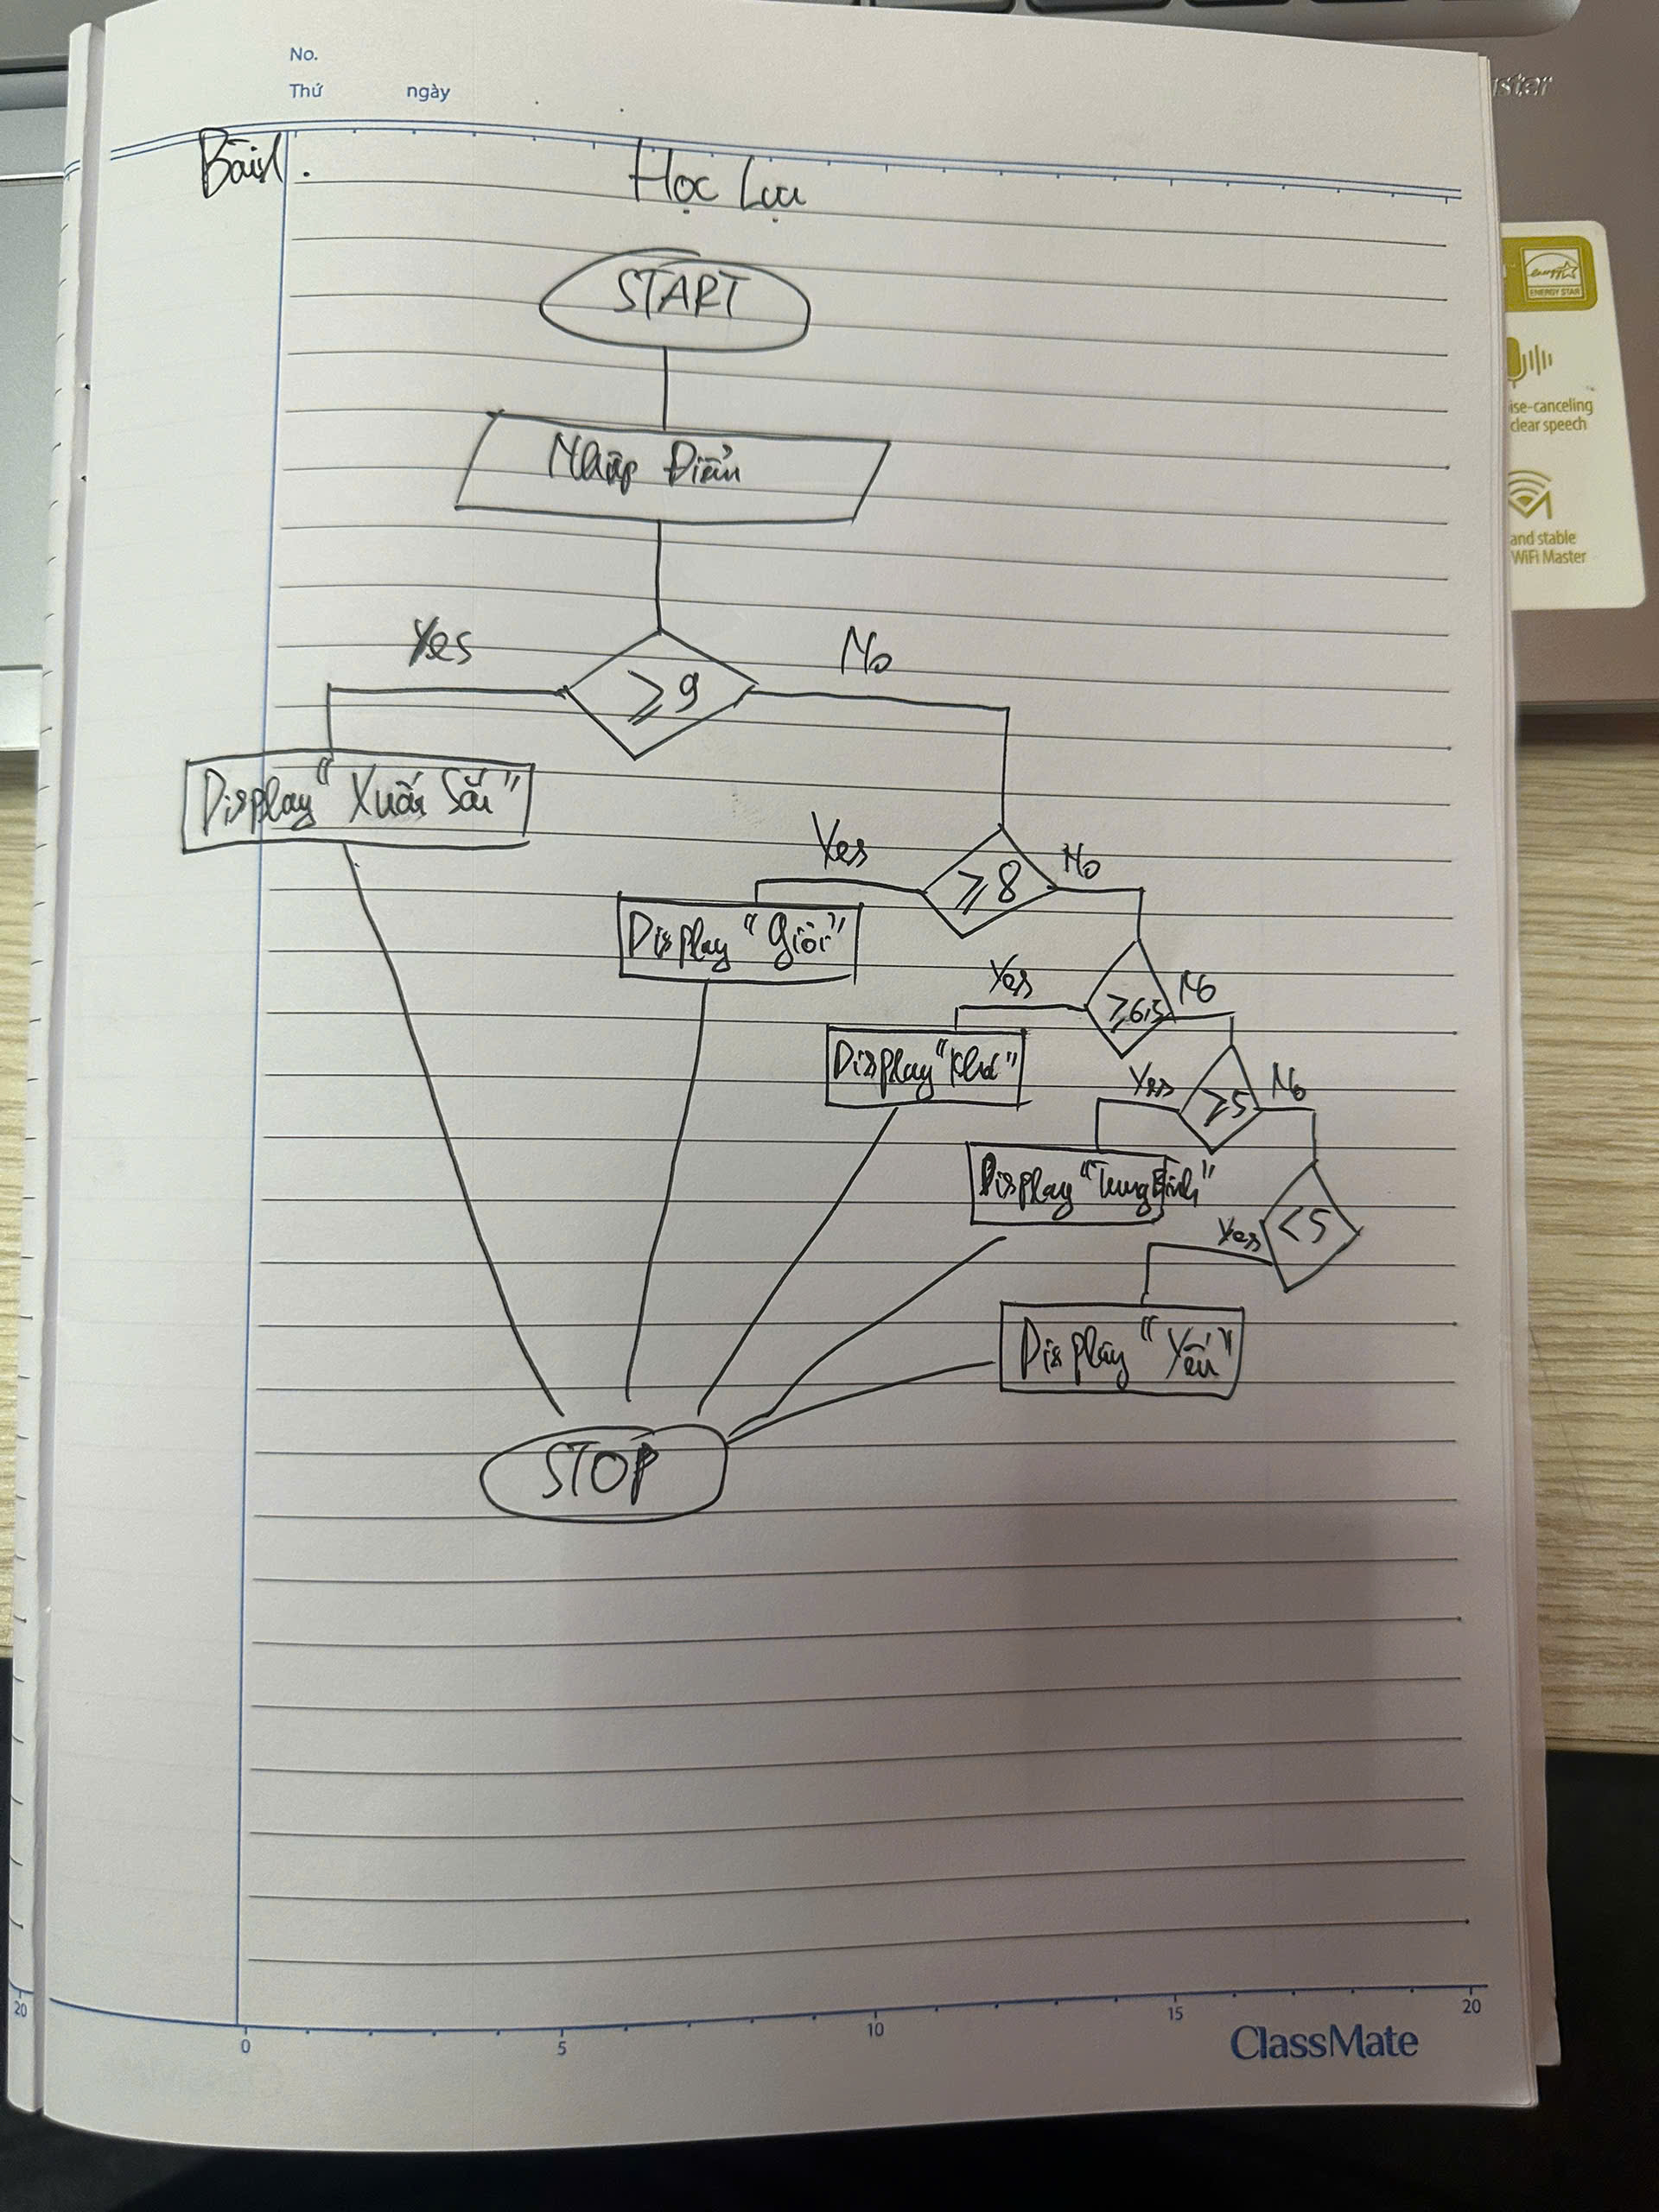 No.
Thứ ngày
Bài 1.
Học Lực
START
Nhập Điểm
Yes
No
≥ 9
Display "Xuất Sắc"
Yes
No
≥ 8
Display "Giỏi"
Yes
No
≥ 6,5
Display "Khá"
Yes
No
≥ 5
Display "Trung Bình"
Yes
< 5
Display "Yếu"
STOP
0 5 10 15 20
20
ClassMate
ster
ENERGY STAR
ise-canceling
clear speech
and stable
WiFi Master